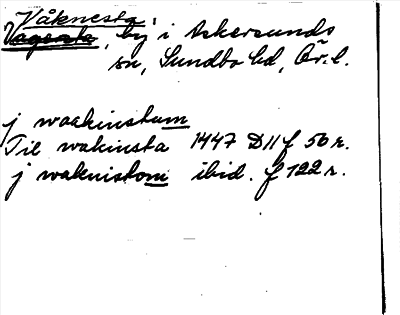 Våknesta,
by i Askersunds
sn, Sundbo hd, Ör. l.
j waakinstum
Til wakinsta 1447 D11 f 56 r.
j waknistom ibid. f 122 r.